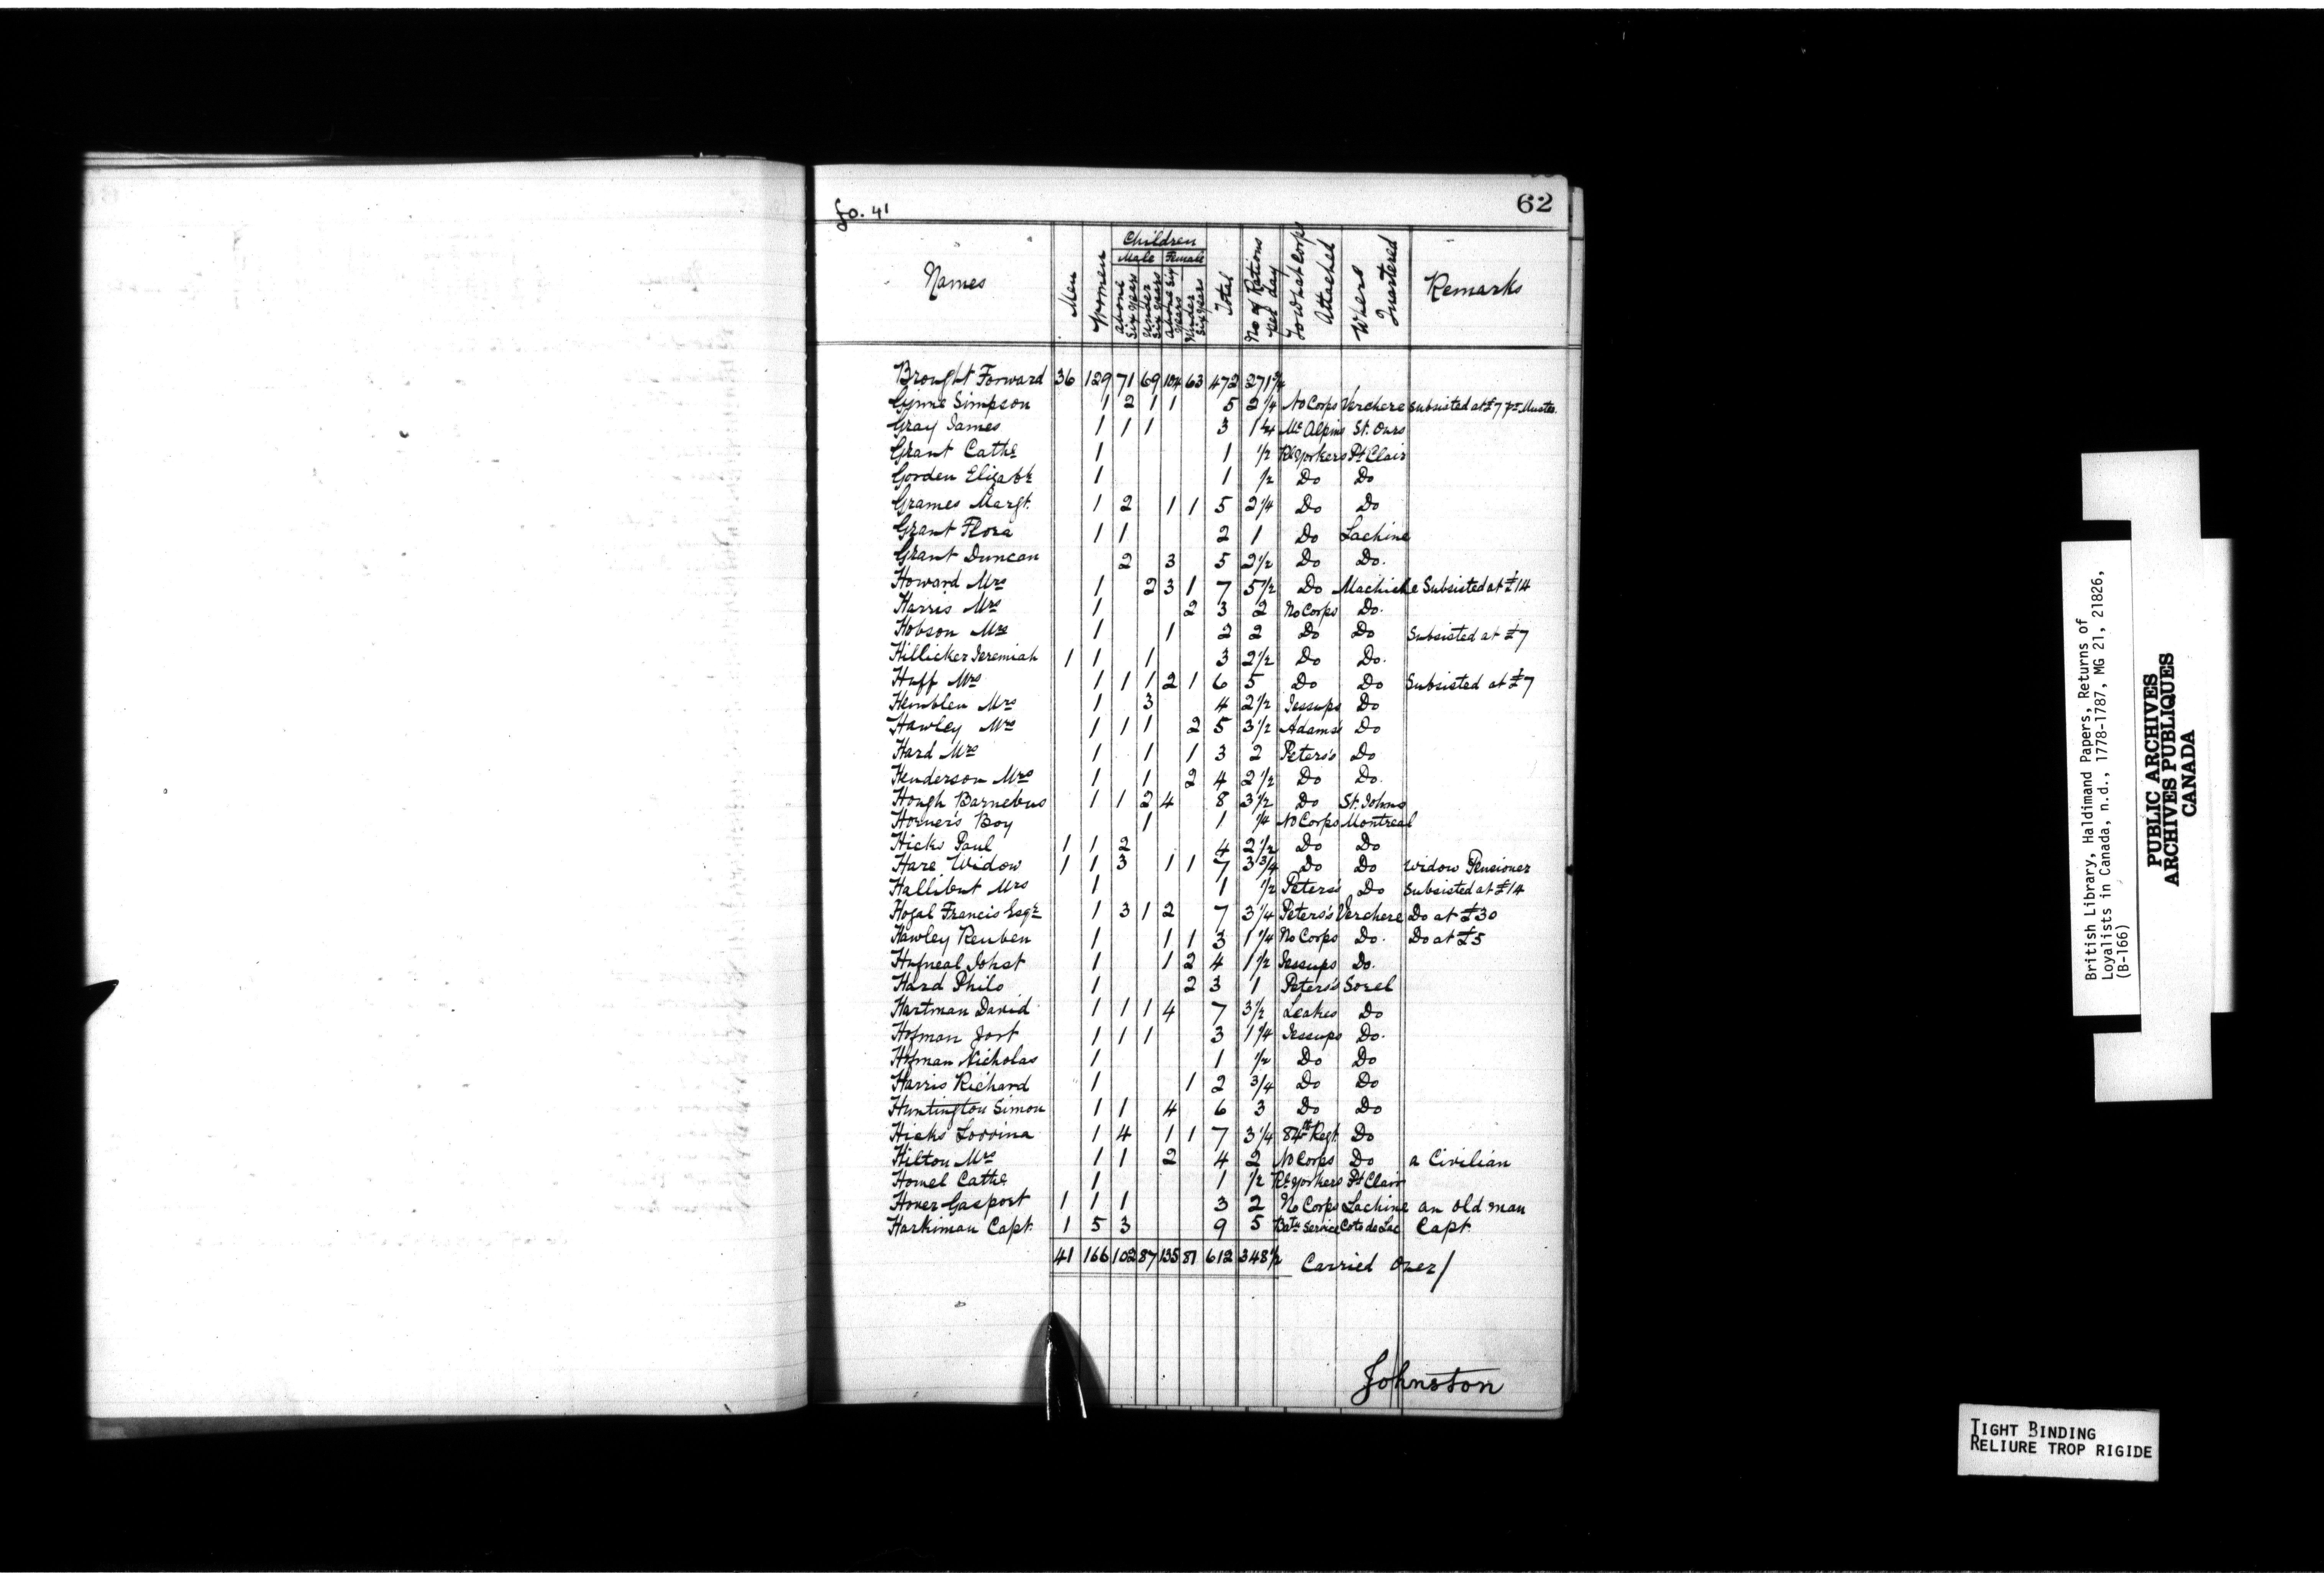 fo. 41
62
Names Men Women Children Total No of Rations per day To what Corps Attached Where Quartered Remarks
Male Female
above Six years under Six years above Six years under Six years
Brought Forward 36 129 71 69 104 63 472 271 3/4
Simpson 1 2 1 1 5 2 1/4 No Corps Verchere Subsisted at £7 pr. Muster
Gray James 1 1 1 3 1 1/4 Mc Alpins St. Ours
Grant Cathe 1 1 1/2 Rl Yorkers Pt Clair
Gorden Elizabt 1 1 1/2 Do Do
Grames Margt. 1 2 1 1 5 2 1/4 Do Do
Grant Flora 1 1 2 1 Do Lachine
Grant Duncan 2 3 5 2 1/2 Do Do.
Howard Mrs 1 2 3 1 7 5 1/2 Do Machiche Subsisted at £14
Harris Mrs 1 2 3 2 No Corps Do.
Hobson Mrs 1 1 2 2 Do Do Subsisted at £7
Hillicker Jeremiah 1 1 1 3 2 1/2 Do Do.
Huff Mrs 1 1 1 2 1 6 5 Do Do Subsisted at £7
Hemblen Mrs 1 3 4 2 1/2 Jessups Do
Hawley Mrs 1 1 1 2 5 3 1/2 Adams's Do
Hard Mrs 1 1 1 3 2 Peters's Do
Henderson Mrs 1 1 2 4 2 1/2 Do Do.
Hough Barnebus 1 1 2 4 8 3 1/2 Do St. Johns
Horner's Boy 1 1 1/4 No Corps Montreal
Hicks Paul 1 1 2 4 2 1/2 Do Do
Hare Widow 1 1 3 1 1 7 3 3/4 Do Do Widow Pensioner
Hallibut Mrs 1 1 1/2 Peters's Do Subsisted at £14
Hogal Francis Esqr 1 3 1 2 7 3 1/4 Peters's Verchere Do at £30
Hawley Reuben 1 1 1 3 1 1/4 No Corps Do. Do at £5
Hufneal Johst 1 1 2 4 1 1/2 Jessups Do.
Hard Philo 1 2 3 1 Peters's Sorel
Hartman David 1 1 1 4 7 3 1/2 Leakes Do
Hofman Jost 1 1 1 3 1 1/4 Jessups Do.
Hofman Nicholas 1 1 1/2 Do Do
Harris Richard 1 1 2 3/4 Do Do
Huntington Simon 1 1 4 6 3 Do Do
Hicks Lovvina 1 4 1 1 7 3 1/4 84th Regt. Do
Hilton Mrs 1 1 2 4 2 No Corps Do a Civilian
Homel Cathe 1 1 1/2 Rl Yorkers Pt Clair
Hover Gasport 1 1 1 3 2 No Corps Lachine an old man
Harkiman Capt. 1 5 3 9 5 Batu Service Coto do Lac Capt.
41 166 102 87 135 81 612 348 1/2 Carried Over/
Johnston
British Library, Haldimand Papers, Returns of
Loyalists in Canada, n.d., 1778-1787, MG 21, 21826,
(B-166)
PUBLIC ARCHIVES
ARCHIVES PUBLIQUES
CANADA
TIGHT BINDING
RELIURE TROP RIGIDE